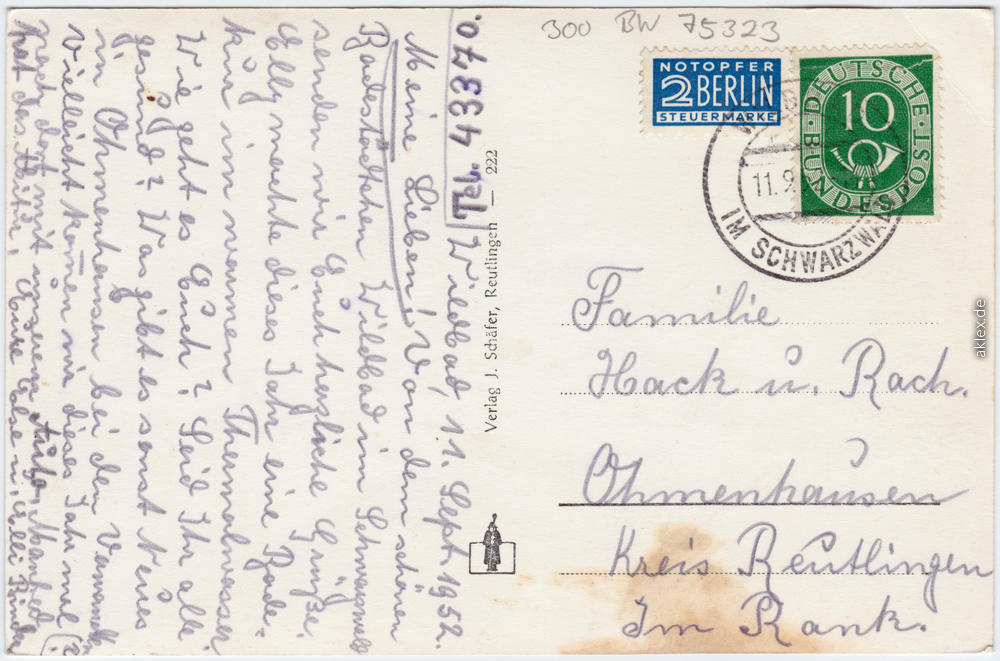 300 BW 75323
NOTOPFER
2 BERLIN
STEUERMARKE
DEUTSCHE BUNDESPOST
10
11.9.
IM SCHWARZWALD
Tel. 334
Wildbad, 11. Sept. 1952.
Meine Lieben! Von dem schönen
Badestädtchen Wildbad im Schwarzwald
senden wir Euch herzliche Grüße.
Elly machte dieses Jahr eine Bade-
kur im warmen Thermalwasser.
Wie geht es Euch? Seid Ihr alle
gesund? Was gibt es sonst Neues
in Ohmenhausen bei den
Vielleicht kommen wir dieses Jahr mal
noch dort mit unserem Auto, Manfred
hat das Eure Else u.
Verlag J. Schäfer, Reutlingen — 222
Familie
Hack u. Rach.
Ohmenhausen
Kreis Reutlingen
Im Rank.
aklex.de